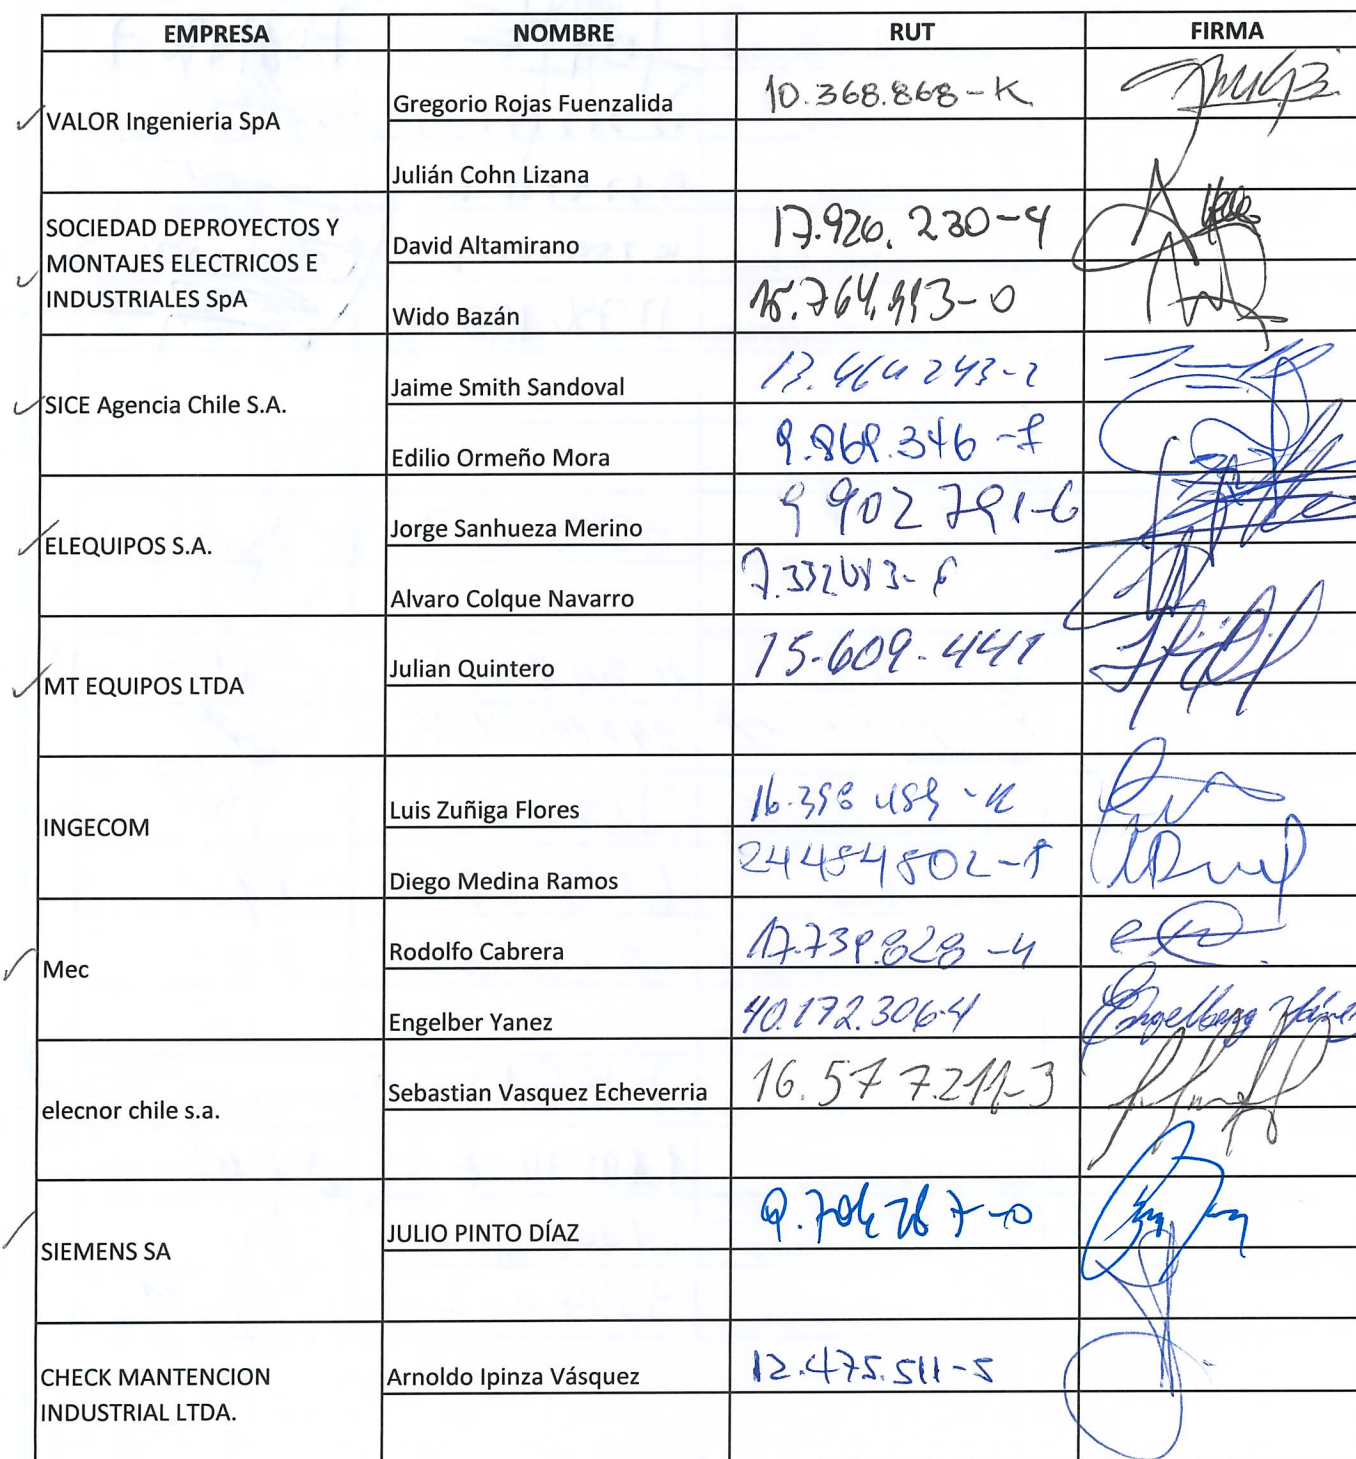 EMPRESA NOMBRE RUT FIRMA
VALOR Ingenieria SpA
Gregorio Rojas Fuenzalida 10.368.868-K
Julián Cohn Lizana
SOCIEDAD DEPROYECTOS Y
MONTAJES ELECTRICOS E
INDUSTRIALES SpA
David Altamirano 17.926.230-4
Wido Bazán
SICE Agencia Chile S.A.
Jaime Smith Sandoval
Edilio Ormeño Mora
ELEQUIPOS S.A.
Jorge Sanhueza Merino 9 902 791-6
Alvaro Colque Navarro
MT EQUIPOS LTDA
Julian Quintero 15.609.441
INGECOM
Luis Zuñiga Flores
Diego Medina Ramos
Mec
Rodolfo Cabrera 17.739.828-4
Engelber Yanez 40.172.306-4
elecnor chile s.a.
Sebastian Vasquez Echeverria 16.577.211-3
SIEMENS SA
JULIO PINTO DÍAZ
CHECK MANTENCION
INDUSTRIAL LTDA.
Arnoldo Ipinza Vásquez 12.475.511-5